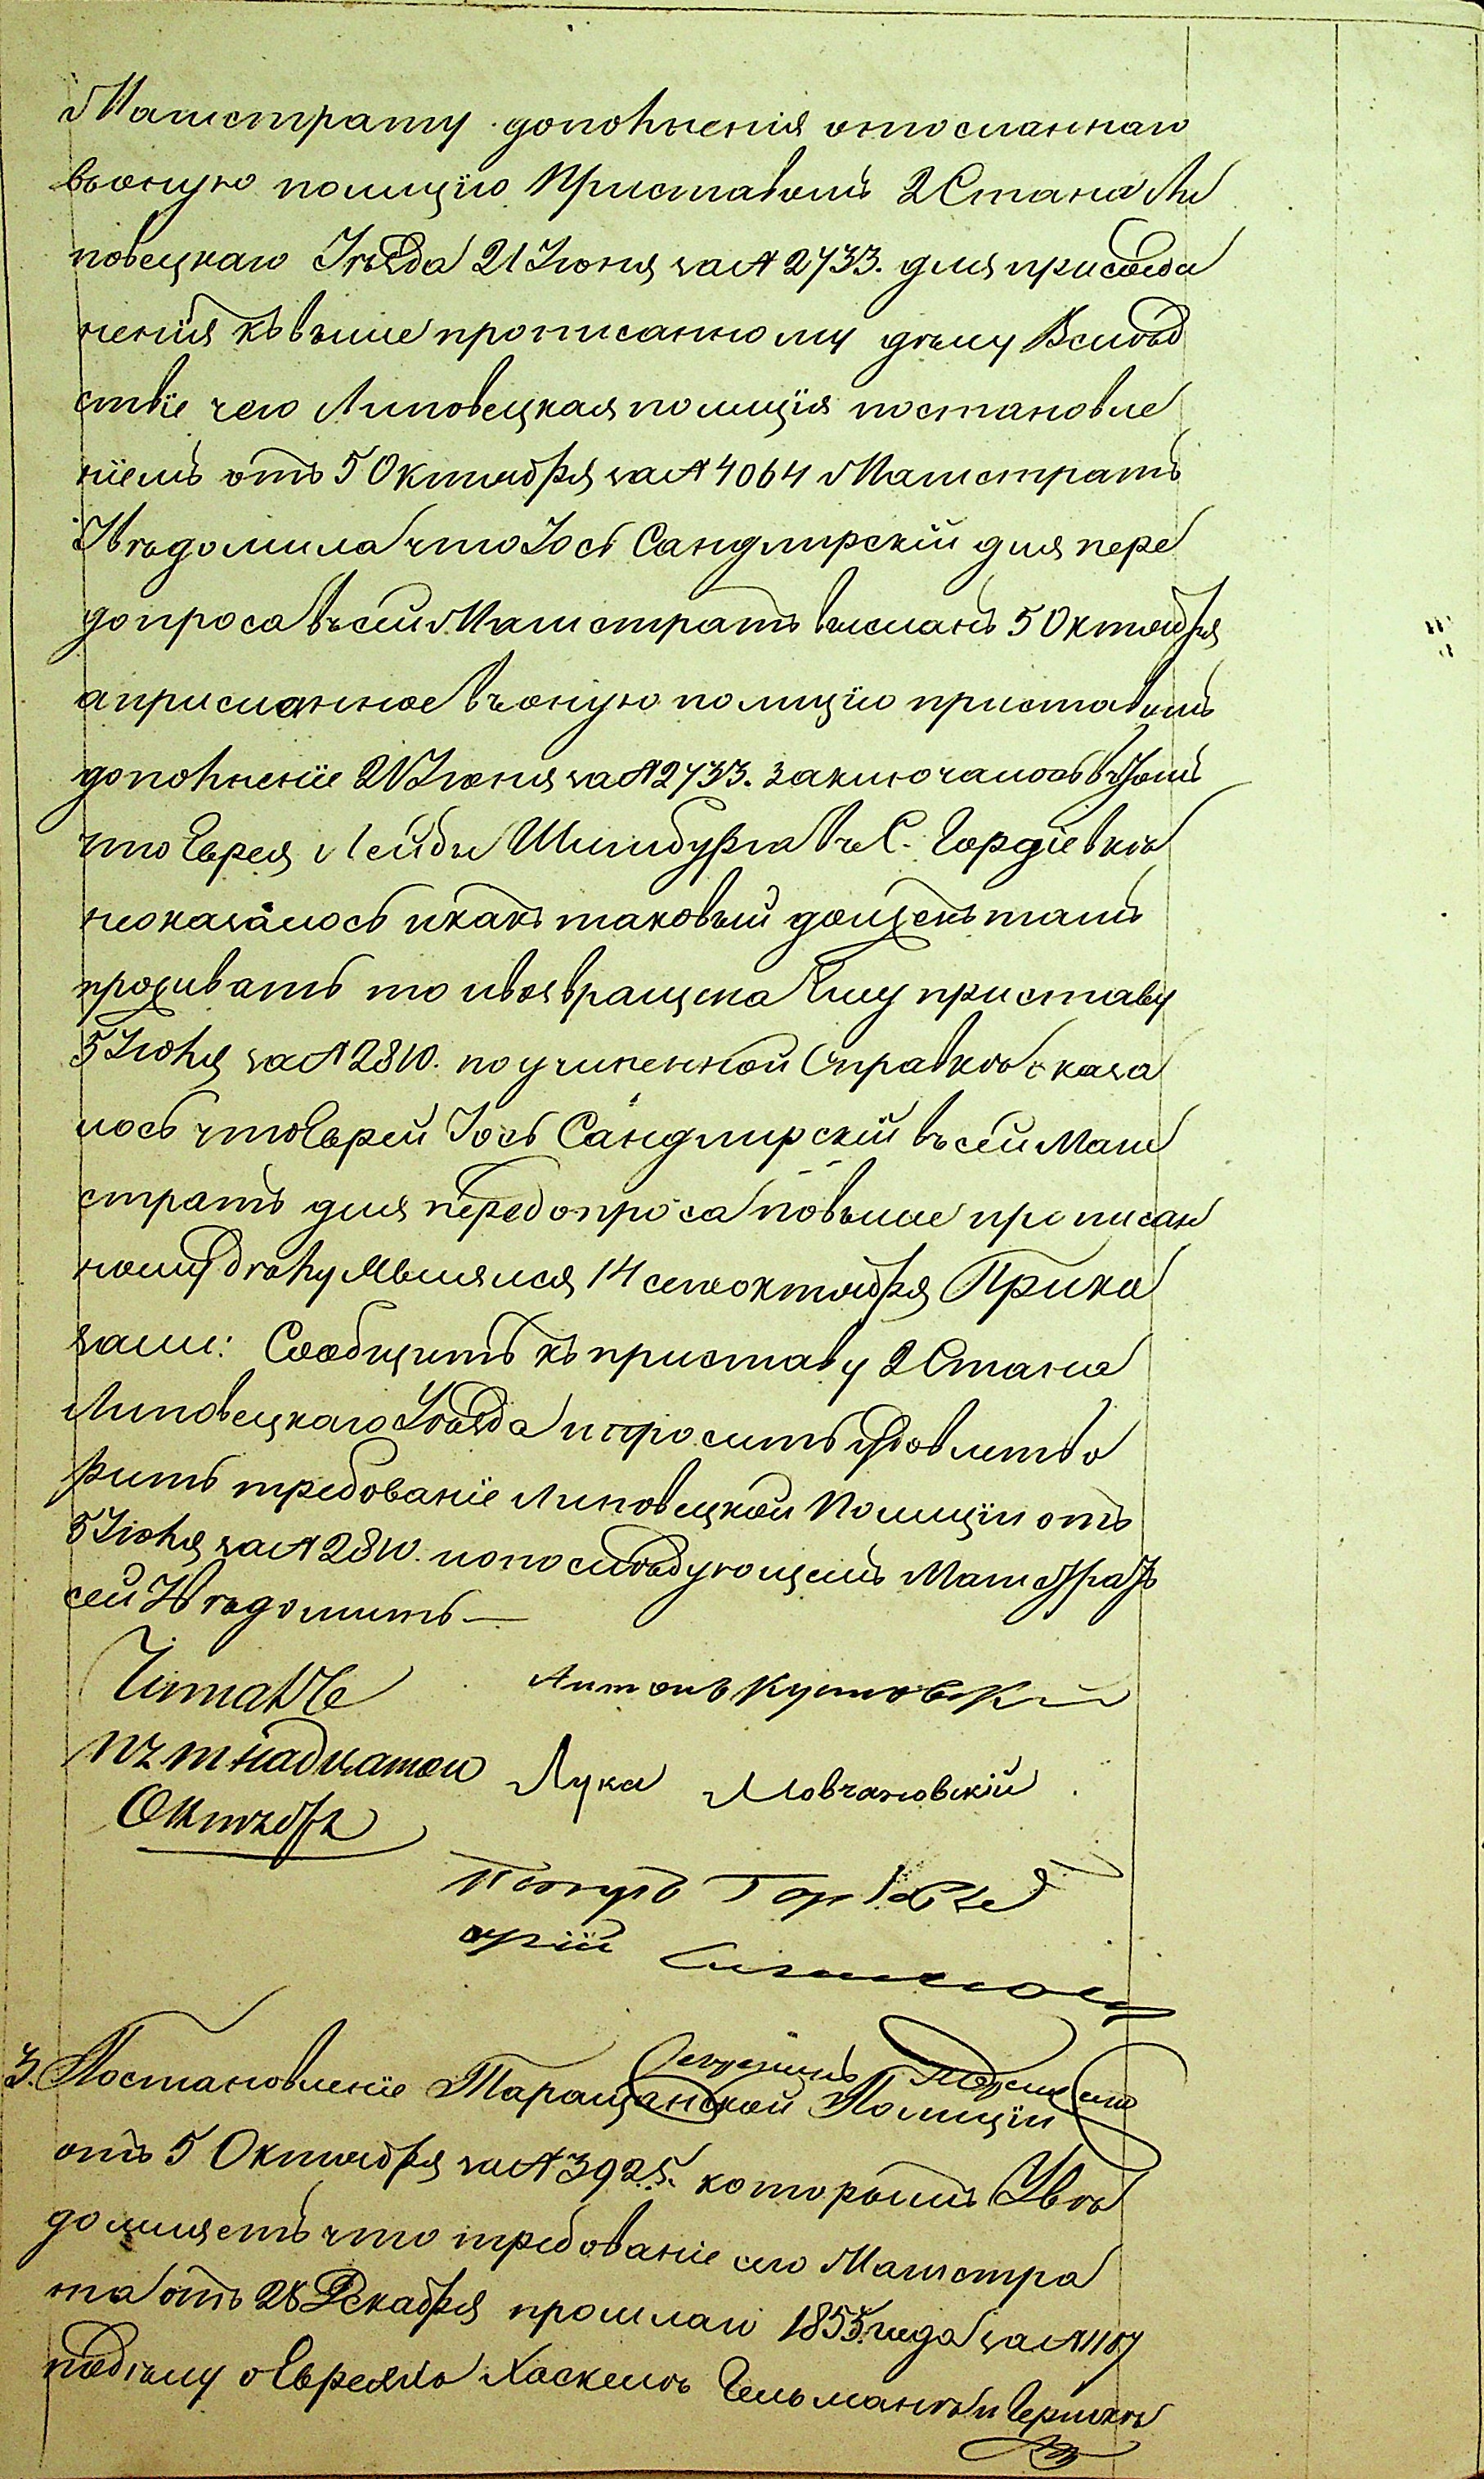 Магистрату дополненія отосланнаго
въоную полицію Приставомъ 2 Стана Ли
повецкаго Уѣзда 21 Іюня за № 2733. для присоеди
ненія къвыше прописанному дѣлу Вслѣд
ствіе чего Липовецкая полиція постановле
ніемъ отъ 5 Октября за № 4064 Магистратъ
Увѣдомила что Іось Сандлирскій для пере
допроса въсей Магистратъ высланъ 5 Октября
а присланное въоную полицію приставомъ
дополненіе 21 Іюня за № 2733. заключалось вътомъ
что Еврея Лейбы Шимбурга въ С. Гордіевкѣ
неоказалось икакъ таковый долженъ тамъ
проживать то ивозвращена Ему приставу
5 Іюля за № 2810. по учиненной Справкѣ оказа
лось что Еврей Іось Сандлирскій въсей Маги
стратъ для передопроса повыше прописан
ному дѣлу Явлился 14 сего октября Прика
зали: Сообщить къ приставу 2 Стана
Липовецкаго Уѣзда и просить удовлетво
рить требованіе Липовецкой Полиціи отъ
5 Іюля за № 2810. ипо послѣдующемъ Магистратъ
сей Увѣдомить —
Читалъ
пятнадцатаго
Октября
Антонъ Кутовскій
Лука Мовчановскій
3. Постановленіе Таращанской Полиціи
отъ 5 Октября за № 3925. которымъ Увѣ
домляетъ что требованіе сего Магистра
та отъ 28 Декабря прошлаго 1855 года за № 1187
подѣлу о Евреяхъ Хаскелѣ Гельманѣ и Гершкѣ